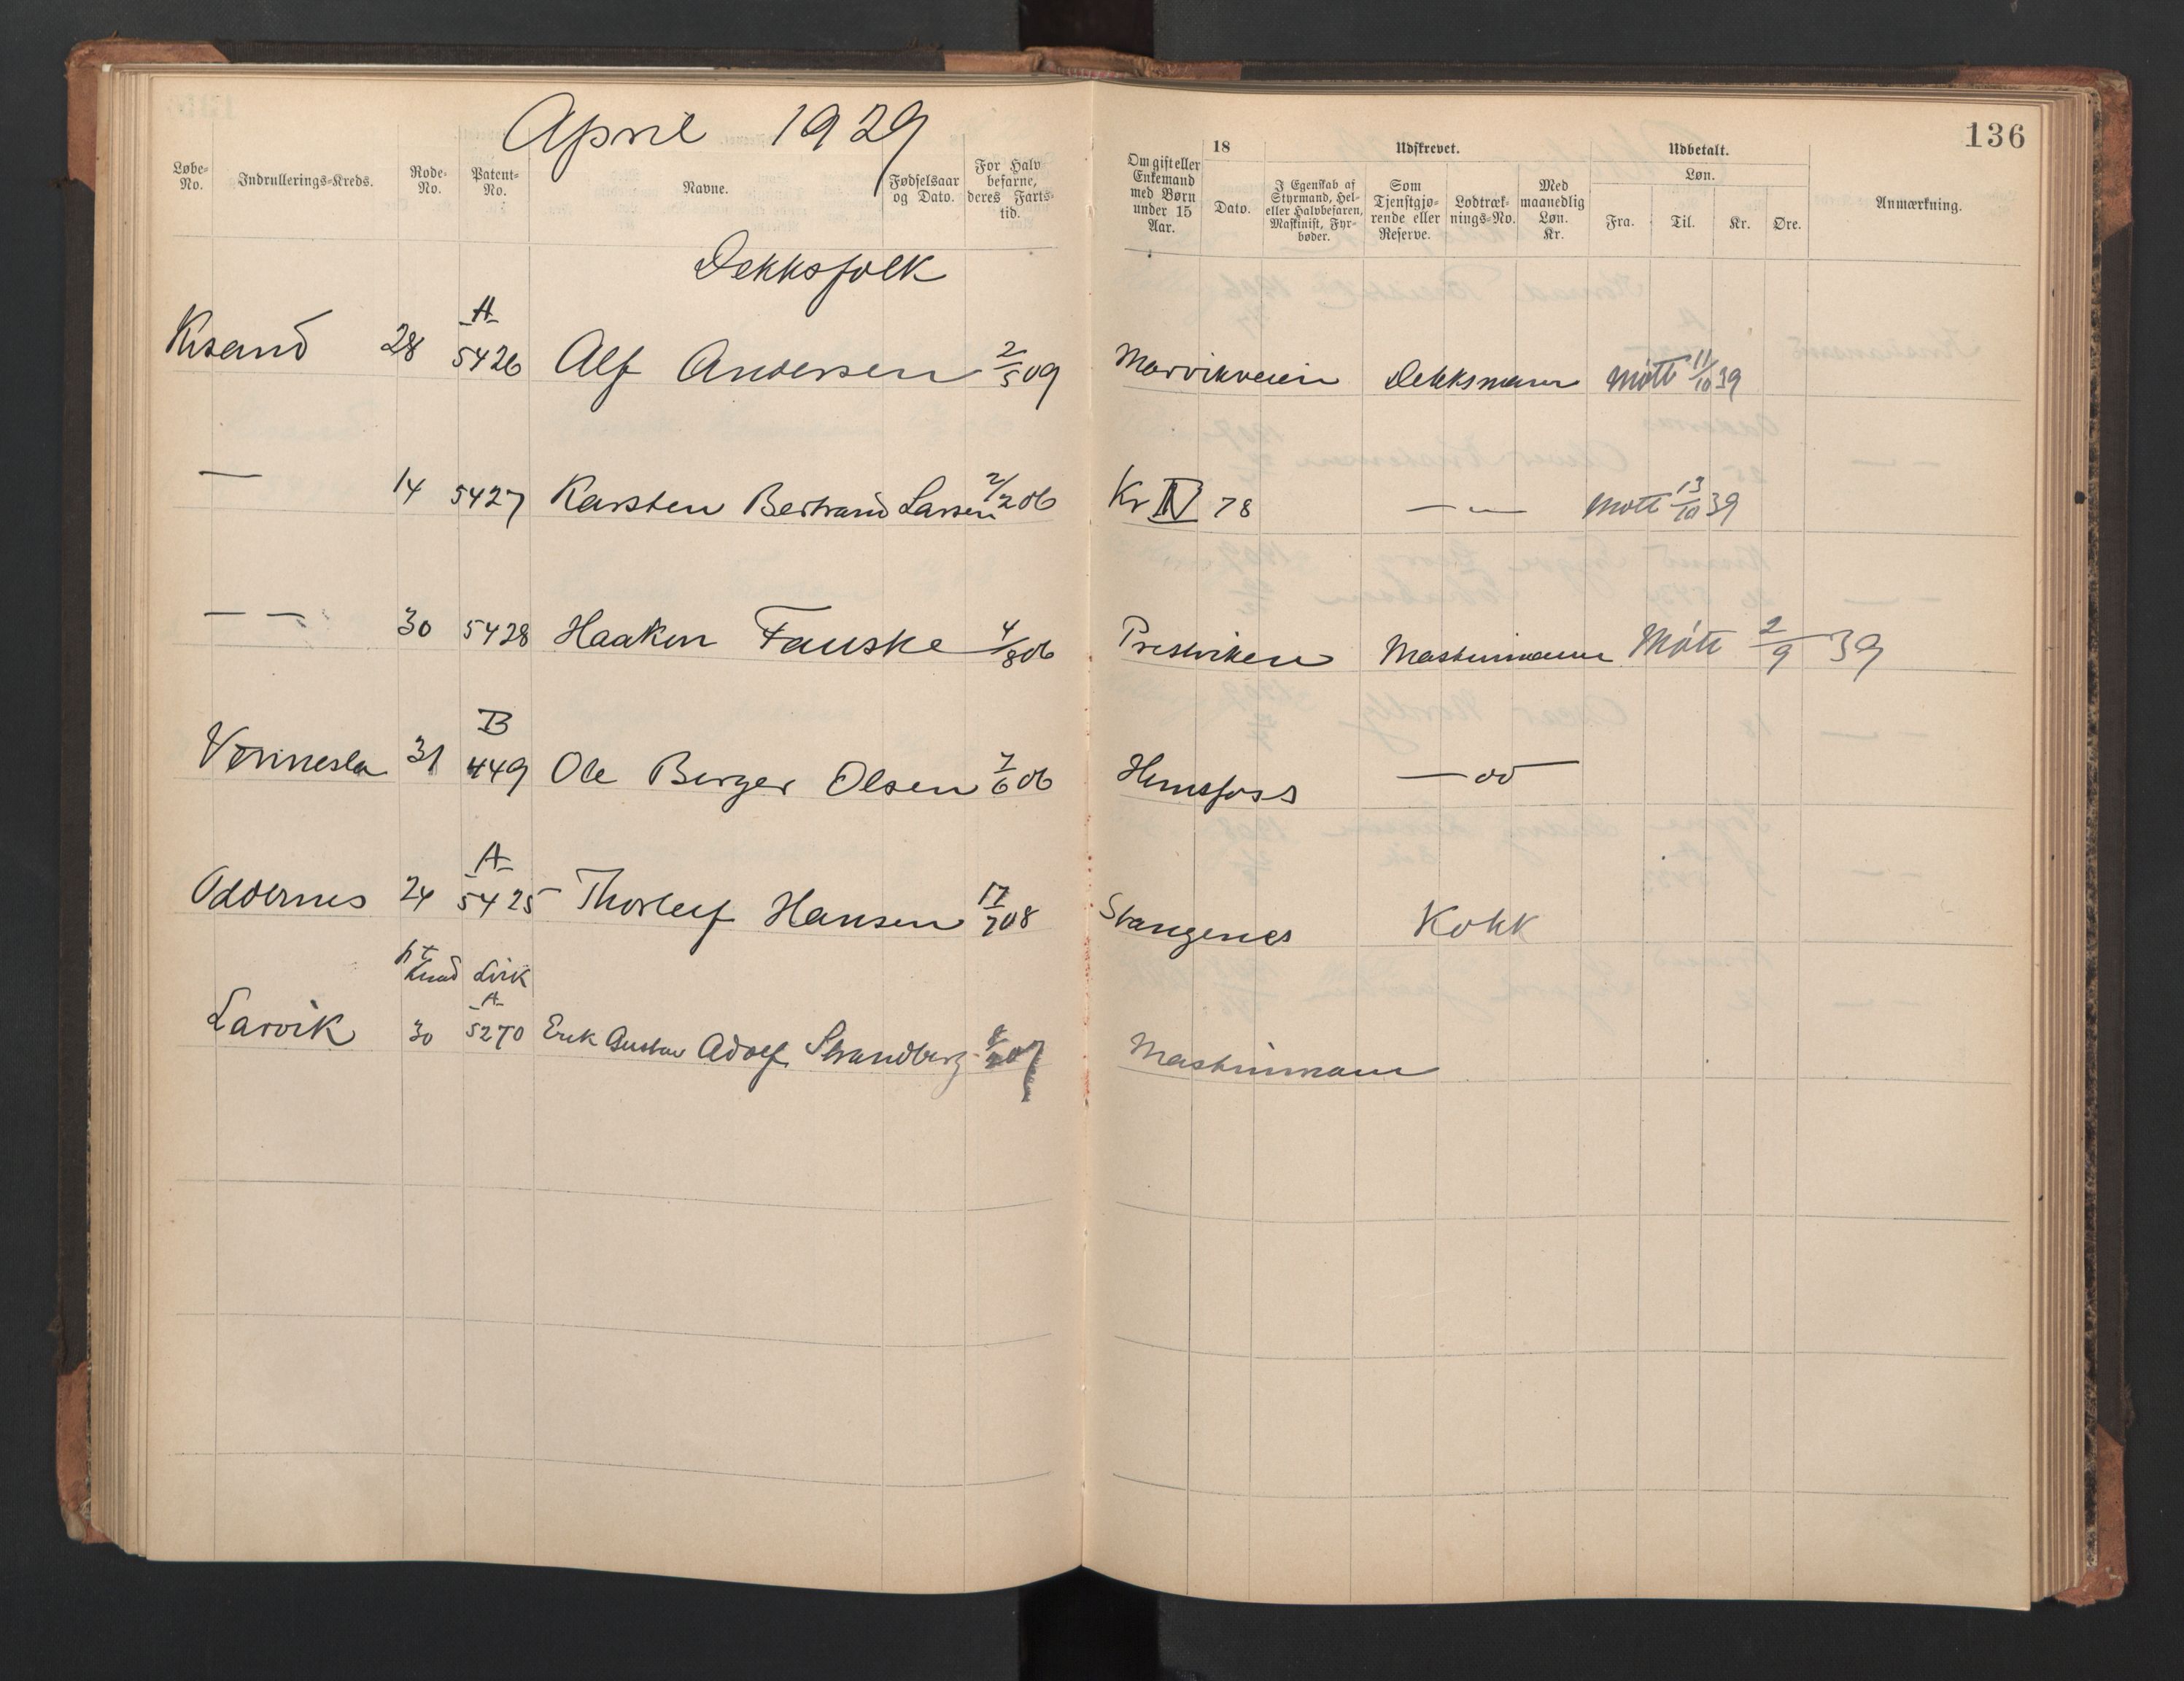 April 1929
136
Løbe-No. Indrullerings-Kreds. Rode-No. Patent-No. Navne. Fødselsaar og Dato. For Halvbefarne, deres Fartstid.
Om gift eller Enkemand med Børn under 15 Aar. 18 Dato. Udskrevet. I Egenskab af Styrmand, Hel- eller Halvbefaren, Maskinist, Fyrbøder. Som Tjenstgjørende eller Reserve. Lodtræknings-No. Med maanedlig Løn. Kr. Udbetalt. Løn. Fra. Til. Kr. Øre. Anmærkning.
Dekksfolk
Krsand 28 A 5426 Alf Andersen 2/5 09 Marvikveien Dekksmann Møtt 11/10 39
— 14 5427 Karsten Bertrand Larsen 2/2 06 Kr IV 78 — — Møtt 13/10 39
— — 30 5428 Haakon Fauske 4/8 06 Prestviken Maskinmann Møtt 2/9 39
Vennesla 31 B 449 Ole Berger Olsen 7/6 06 Hunsfoss — oo —
Oddernes 24 A 5425 Thorleif Hansen 17/7 08 Strangenes Kokk
Larvik 30 A 5270 Erik Gustav Adolf Strandberg Maskinmann